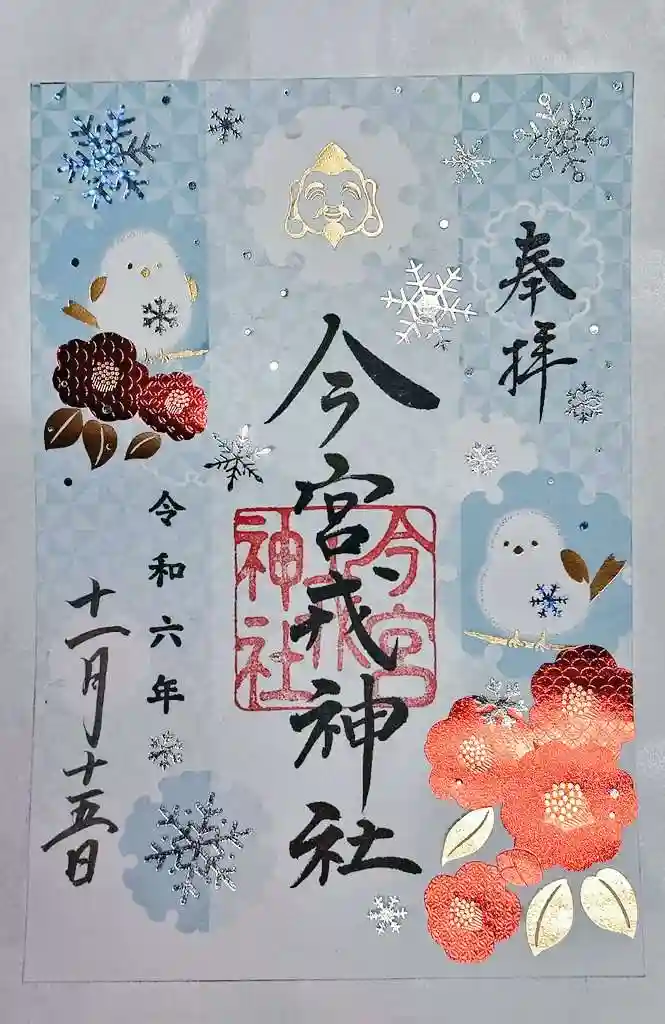 奉拝
今宮戎神社
今宮
戎
神社
令和六年
十一月十五日